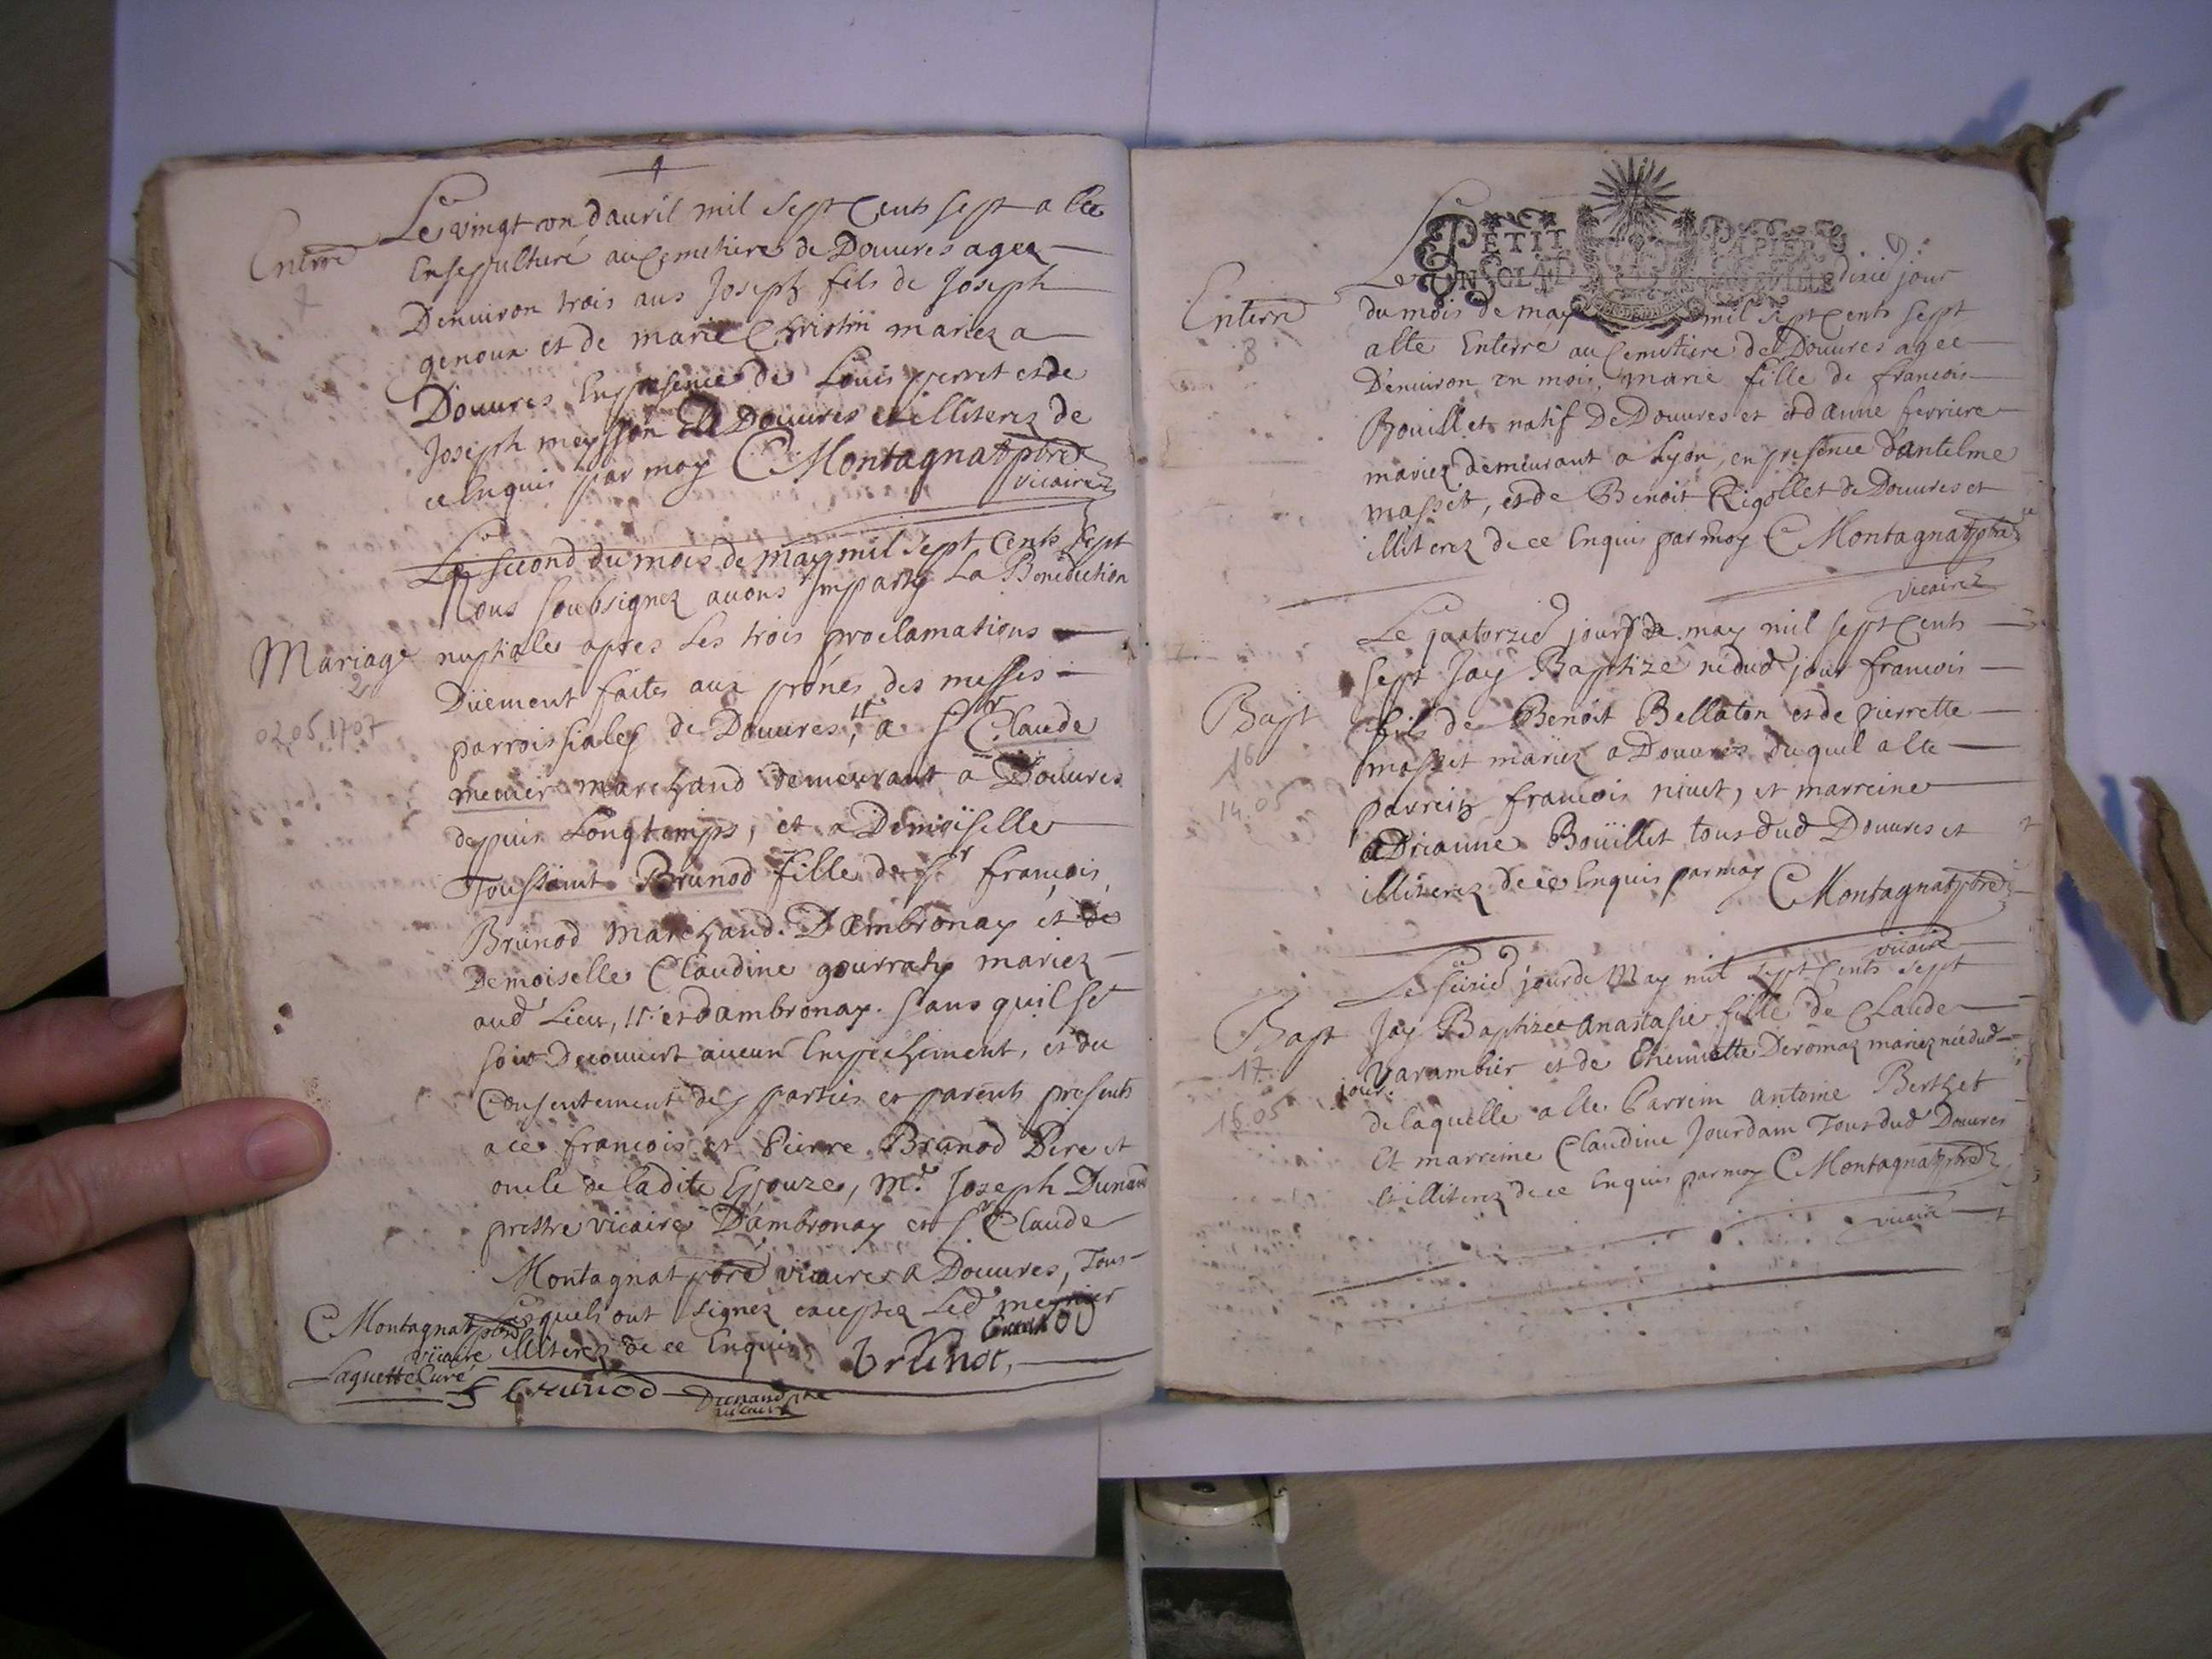 Enterré
7
Le vingt un d'auril mil sept Cents sept a ette
Ensepulturé au Cemetiere de Douures agez
Denuiron trois ans Joseph fils de Joseph
genoux et de marie Christin mariez a
Douures En presence de Louis perret et de
Joseph meysson de Douures et illiterez de
ce Enquis par moy C Montagnat ptre
vicaire
Mariage
2
02.05.1707
Le second du mois de may mil sept Cents sept
Nous soubsignez auons Imparty La Benediction
nuptiale apres Les trois proclamations
Düement faites aux prônes des messes
parroissiales de Douures, a Sr Claude
meunier marchand demeurant a Douures
depuis Longtemps, et a Demoiselle
Toussainte Brunod fille de Sr francois
Brunod marchand Dambronay et de
Demoiselle Claudine gourraty mariez
aud Lieu, et dambronay. sans quil se
soit Decouuert aucun Empechement, et du
Consentement des parties et parents presents
a ce francois et Pierre Brunod Pere et
oncle de ladite Epouze, Mre Joseph Dunand
prestre vicaire D'ambronay et Sr Claude
Montagnat ptre vicaire a Douures, Tous
Lesquels ont signez exceptez Led meynier
illiterez de ce Enquis
C Montagnat ptre
vicaire
brunot,
Laguette Curé
F brunod
Dunand ptre
vicaire
PETIT PAPIER
UN SOL LA
Enterré
8
Le dixie jour
du mois de may mil sept Cents sept
a ette Enterré au Cemetiere de Douures agee
D'enuiron un mois, marie fille de francois
Bouillet natif De Douures et d'anne ferriere
mariez demeurant a Lyon, en presence d'antelme
masset, et de Benoit Rigollet de Douures et
illiterez de ce Enquis par moy C Montagnat ptre
vicaire
Bapt
16
14.05
Le quatorzie jour de may mil sept Cents
sept Jay Baptize né dud jour francois
fils de Benoit Bellaton et de pierrette
masset mariez a Douures duquel a ete
parrein francois niuet, et marreine
aDrianne Boüillet tous dud Douures et
illiterez de ce Enquis par moy C Montagnat ptre
vicaire
Bapt
17
16.05
Le seizie jour de May mil sept Cents sept
Jay Baptizee Anastasie fille de Claude
Varambier et de Thenuette Deromaz mariez née dud
jour.
de laquelle a ete Parrein antoine Berthet
Et marreine Claudine Jourdain Tous dud Douures
Et illiterez de ce Enquis par moy C Montagnat ptre
vicaire